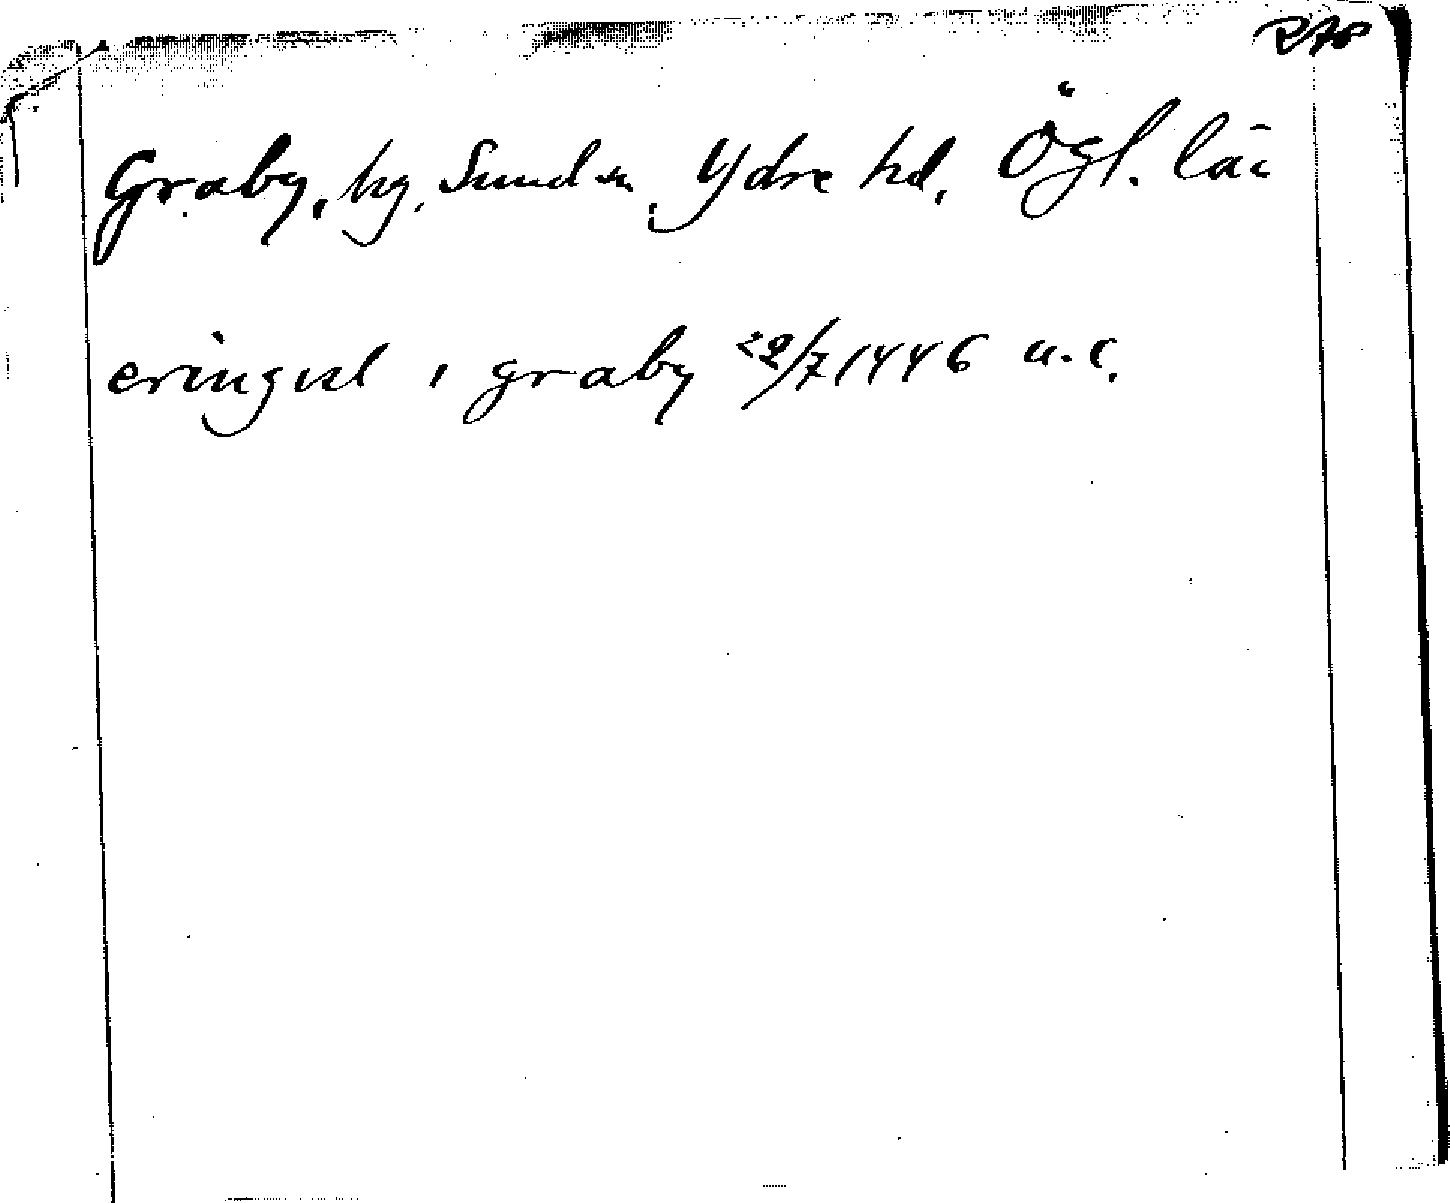 270
Graby, by, Sund sn, Ydre hd, Ögl. län
eringisl i graby 22/7 1446 u.c.